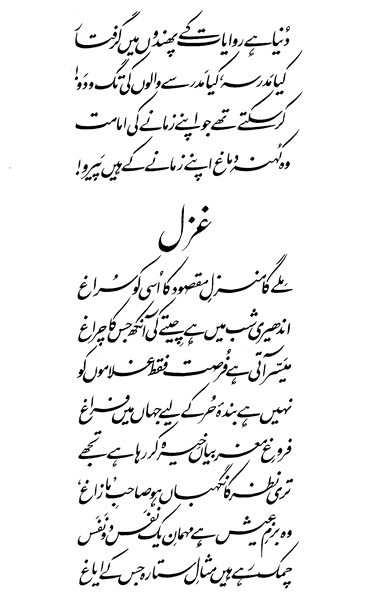 دُنیا ہے روایات کے پھندوں میں گرفتار
کیا مدرسہ، کیا مدرسے والوں کی تگ و دَو!
کر سکتے تھے جو اپنے زمانے کی امامت
وہ کُہنہ دماغ اپنے زمانے کے ہیں پَیرو!
غزل
مِلے گا منزلِ مقصود کا اُسی کو سُراغ
اندھیری شب میں ہے چیتے کی آنکھ جس کا چراغ
میَسّر آتی ہے فُرصت فقط غلاموں کو
نہیں ہے بندۂ حُر کے لیے جہاں میں فراغ
فروغِ مغربیاں خیرہ کر رہا ہے تجھے
تری نظر کا نگہباں ہو صاحبِ ’مازاغ‘
وہ بزمِ عیش ہے مہمانِ یک نفَس دو نفَس
چمک رہے ہیں مثالِ ستارہ جس کے ایاغ